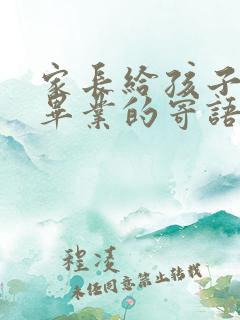 家長給孩子
畢業的寄語
程凌
未經同意禁止轉載